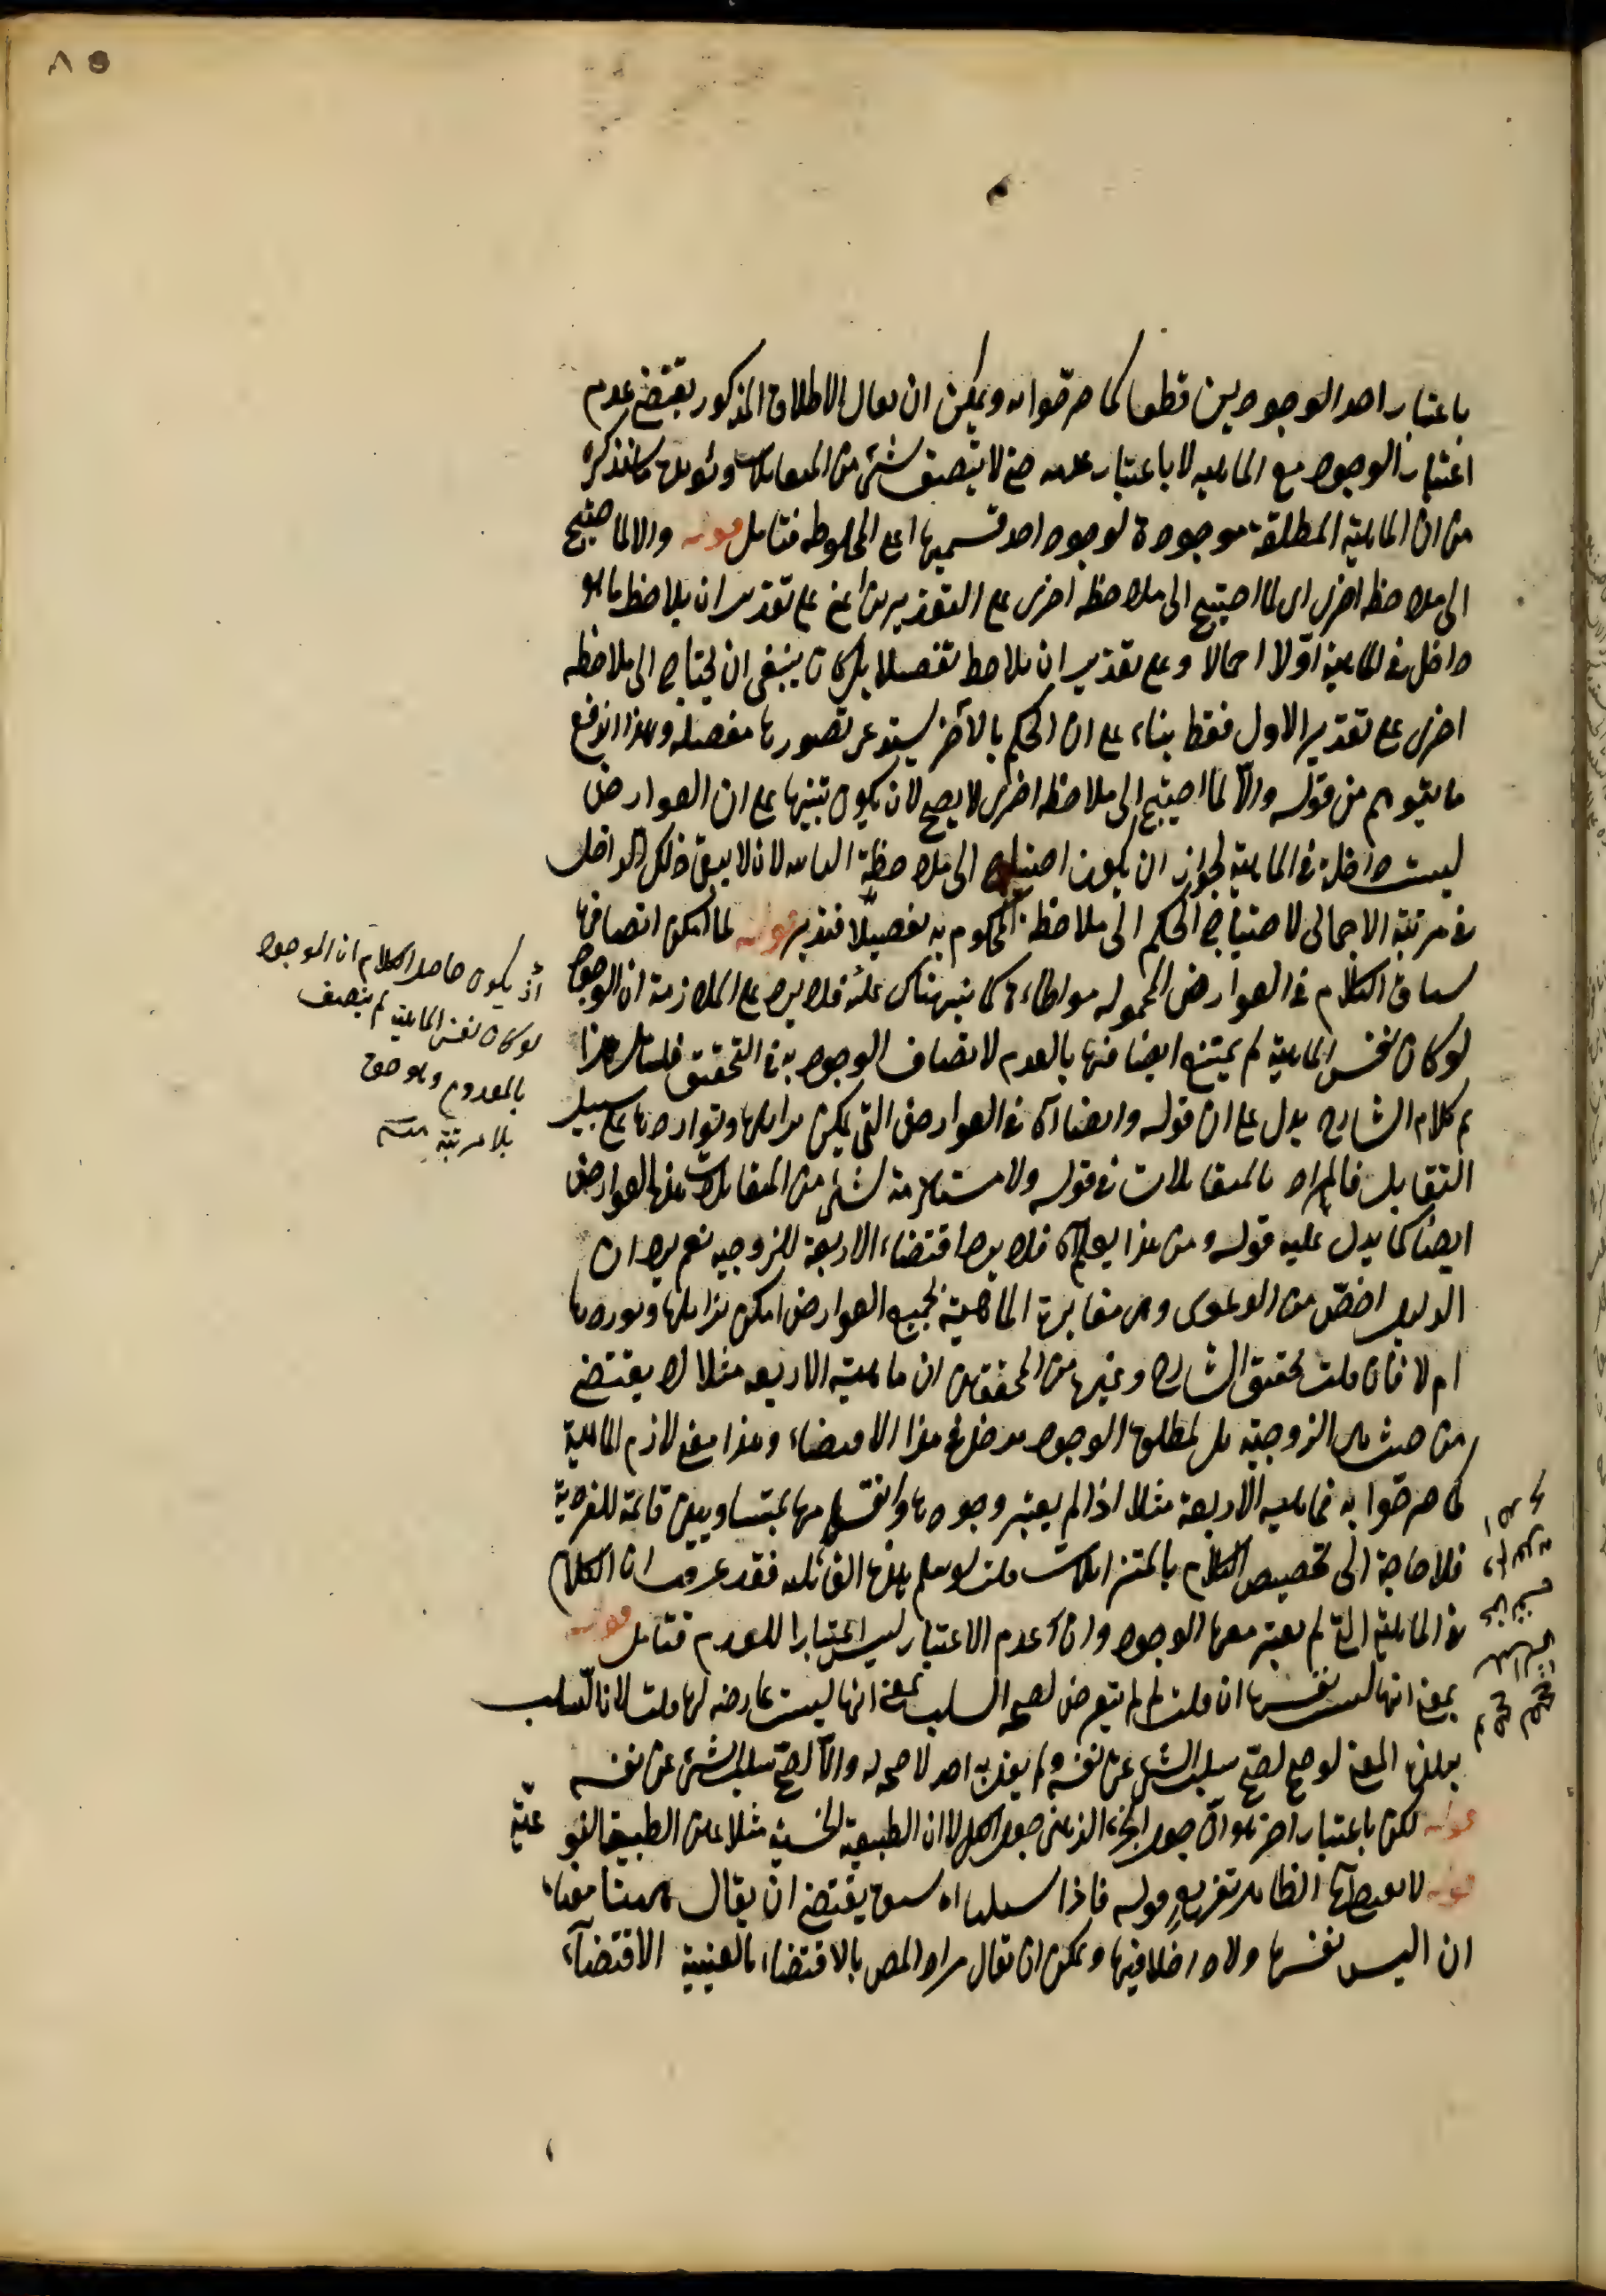 ٨٥
باعتبار احد الوجودين قطعا كما صرحوا به ويمكن ان يقال الاطلاق المذكور يقتضى عدم
اعتبار الوجود مع الماهية لا باعتبار عدمه حتى لا يتصف بشئ من المتقابلات ويؤيده ما سنذكره
من ان الماهية المطلقة موجودة لوجود احد قسميها اعنى المخلوطة فتأمل قوله والا لما احتيج
الى ملاحظة اخرى اى لما احتيج الى ملاحظة اخرى على التقديرين اعنى على تقدير ان يلاحظ ما هو
داخل فى الماهية اولا اجمالا وعلى تقدير ان يلاحظ تفصيلا بل كان ينبغى ان يحتاج الى ملاحظة
اخرى على تقدير الاول فقط بناء على ان الحكم بالآخر يستدعى تصورها مفصلة وبهذا اندفع
ما يتوهم من قوله والا لما احتيج الى ملاحظة اخرى لا يصح لان يكون تنبيها على ان العوارض
ليست داخلة فى الماهية لجواز ان يكون احتياج الى ملاحظة الثانية لانه لا يبقى ذلك الداخل
فى مرتبة الاجمالى لاحتياج الحكم الى ملاحظة المحكوم به تفصيلا فتدبر قوله لما امكن اتصافها
سياق الكلام فى العوارض المحمولة مواطاءة كما نبهناك عليه فلا يرد على الملازمة ان الوجود
لو كان نفس الماهية لم يمتنع ايضا فيها بالعدم لاتصاف الوجود به فى التحقيق فليتأمل هذا
ثم كلام الشارح يدل على ان قوله وايضا اه فى العوارض التى يمكن تزايلها وتواردها على سبيل
التقابل فالمراد بالمتقابلات فى قوله ولا مستلزمة لشئ من المتقابلات هذه العوارض
ايضا كما يدل عليه قوله ومن هذا يعلم اه فلا يرد اقتضاء الاربعة للزوجية نعم يرد ان
الدليل اخص من الدعوى وهى مغايرة الماهية لجميع العوارض امكن تزايلها وتواردها
ام لا فان قلت تحقيق الشارح وغيره من المحققين ان ماهية الاربعة مثلا لا يقتضى
من حيث هى الزوجية بل لمطلق الوجود مدخل فى هذا الاقتضاء وهذا معنى لازم الماهية
كما صرحوا به فماهية الاربعة مثلا اذا لم يعتبر وجودها وانقسامها بمتساويين قائمة للفردية
فلا حاجة الى تخصيص الكلام بالمتزايلات قلت لو سلم هذه القائلة فقد عرفت ان الكلام
فى الماهية التى لم يعتبر معها الوجود وان عدم الاعتبار ليس اعتبارا للعدم فتأمل قوله
بمعنى انها ليست نفسها ان قلت لم لم يتعرض لصحة السلب بمعنى انها ليست عارضة لها قلت لان السلب
بهذا المعنى لو صح لصح سلب الشئ عن نفسه ولم يقل به احد لا صحة له والا لصح سلب الشئ عن نفسه
قوله لكن باعتبار اخر هو ان جعل الجزء الذهنى جعل الكل لان الطبيعة الجنسية مثلا عين الطبيعة النوعية
قوله لا يعطى اه الظاهر تفريع قوله فاذا سلبنا اه سوق يقتضى ان يقال ههنا معناه
ان ليس نفسها ولا داخلا فيها ويمكن ان يقال مراد المص بالاقتضاء بالعينية الاقتضاء
اذ يكون حاصل الكلام ان الوجود
لو كان نفس الماهية لم يتصف
بالمعدوم وهو حق
بلا مرتبة منه